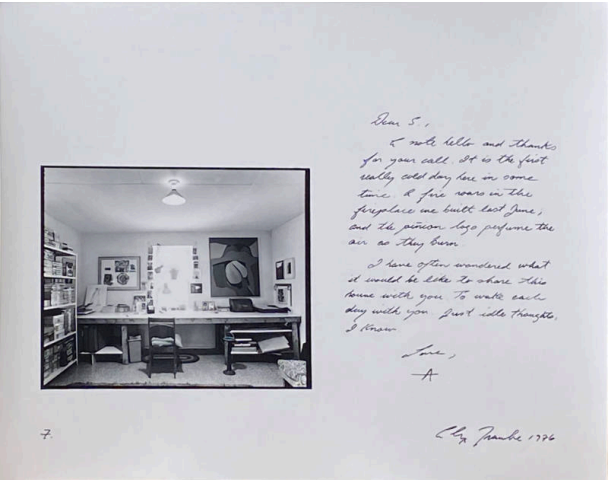 Dear S,
A note hello and thanks
for your call. It is the first
really cold day here in some
time. A fire roars in the
fireplace we built last June,
and the piñon logs perfume the
air as they burn.
I have often wondered what
it would be like to share this
house with you. To wake each
day with you. Just idle thoughts,
I know
Love,
A
7.
1976